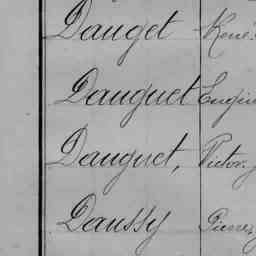 Dauget René
Dauguet Eugèn
Dauguet, Victor
Daussy Pierre,